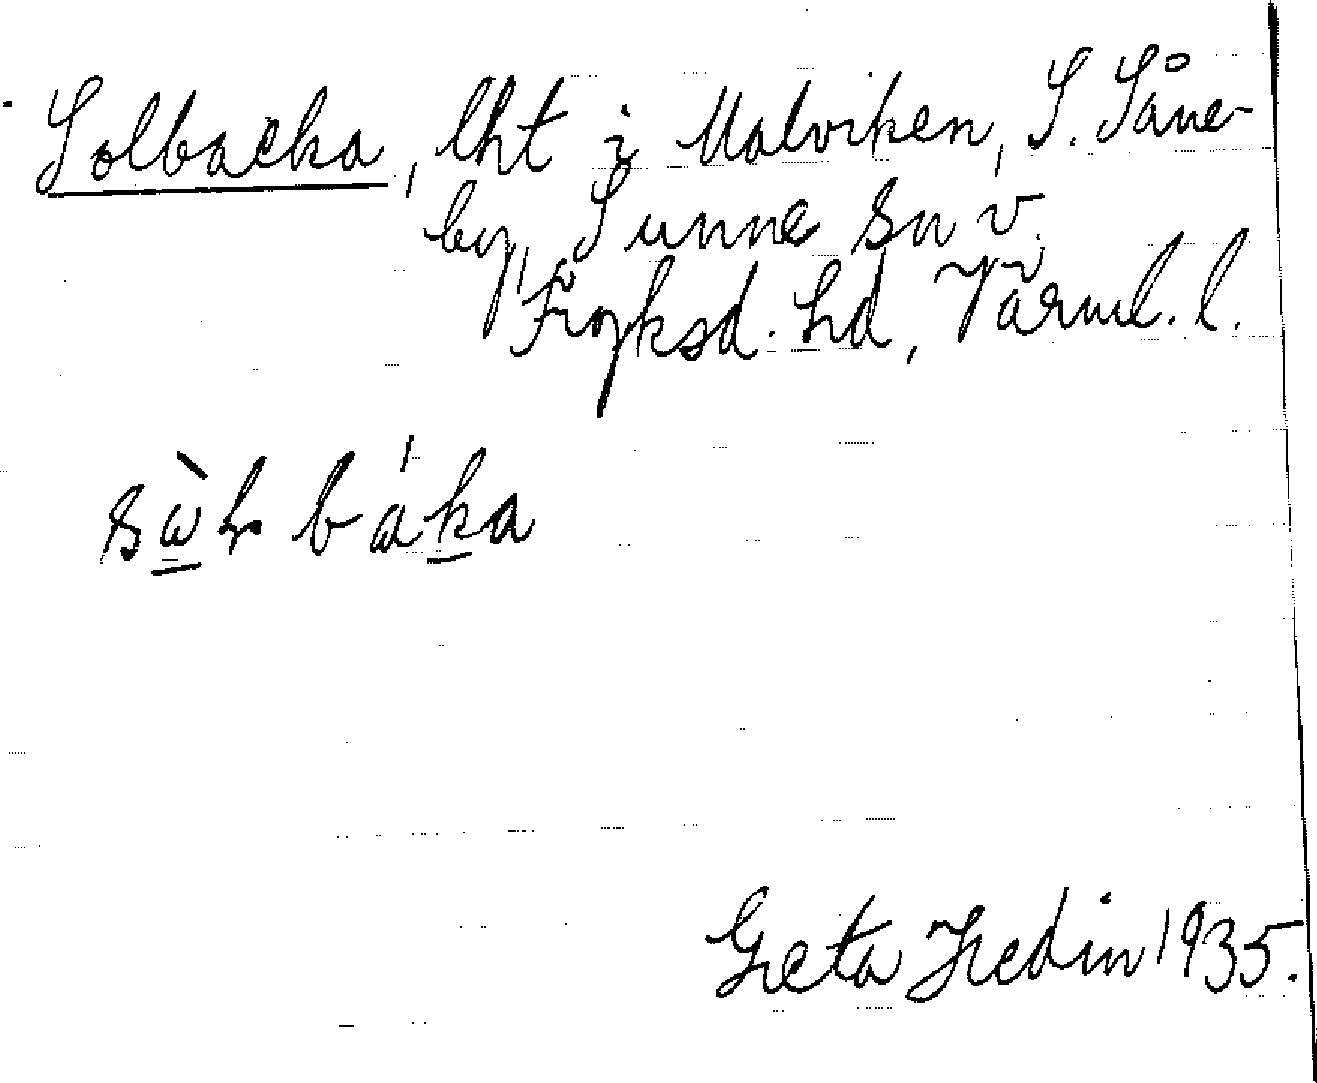 Solbacka, lht i Ulvviken, S. Såne-
by, Sunne sn v.
Fryksd. hd, Värml. l.
Greta Hedin 1935.